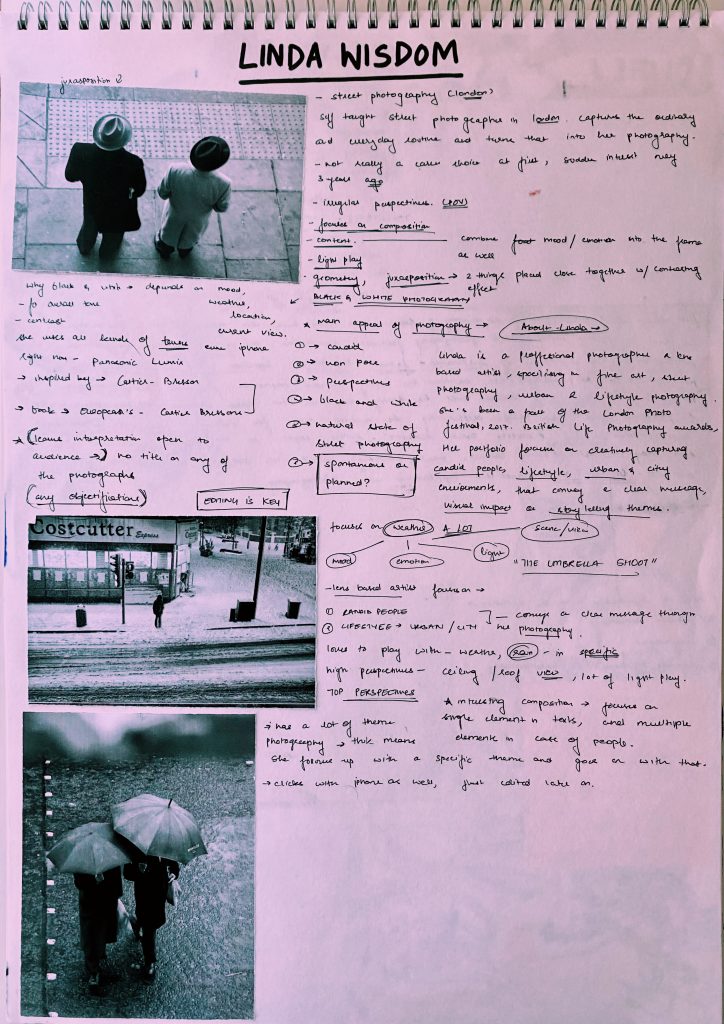 LINDA WISDOM
juxtaposition
- street photography (london)
self taught street photographer in london. captures the ordinary
and everyday routine and turns that into her photography.
- not really a career choice at first, sudden interest
3 years ago
- irregular perspectives. (POV)
- focuses on composition
- content. combine mood/emotion into the frame
- light play as well
- geometry, juxtaposition → 2 things placed close together w/ contrasting
effect
BLACK & WHITE PHOTOGRAPHY
Why black & white → depends on mood,
- for overall tone weather,
- contrast location,
current view.
She uses all kinds of even iphone
right now - Panasonic Lumix
→ inspired by → Cartier-Bresson
→ book → European's - Cartier Bresson
* (leaves interpretation open to
audience →) no title on any of
the photographs
(any objectification)
EDITING IS KEY
* main appeal of photography →
① → candid
② → non pose
③ → perspectives
→ black and white
→ natural state of
street photography
spontaneous or
planned?
About-Linda →
Linda is a proffesional photographer & lens
based artist, specilising in fine art, street
photography, urban & lifestyle photography.
She's been a part of the London Photo
festival, 2017. British Life Photography awards,
Her portfolio focuses on creatively capturing
candid people, lifestyle, urban & city
enviroments, that convey a clear message,
visual impact or story telling themes.
Costcutter Express
focuses on weather A LOT scene/view
mood emotion light
"THE UMBRELLA SHOOT"
- lens based artist focuses on →
① CANDID PEOPLE
② LIFESTYLE → URBAN/CITY
— conveys a clear message through
her photography.
loves to play with - weather, rain - in specific
high perspectives - ceiling/roof view, lot of light play.
TOP PERSPECTIVES
* interesting composition → focuses on
single element in and multiple
elements in case of people.
→ has a lot of theme
photography → means
She follows up with a specific theme and goes on with that.
→ clicks with iphone as well, just edited later on.